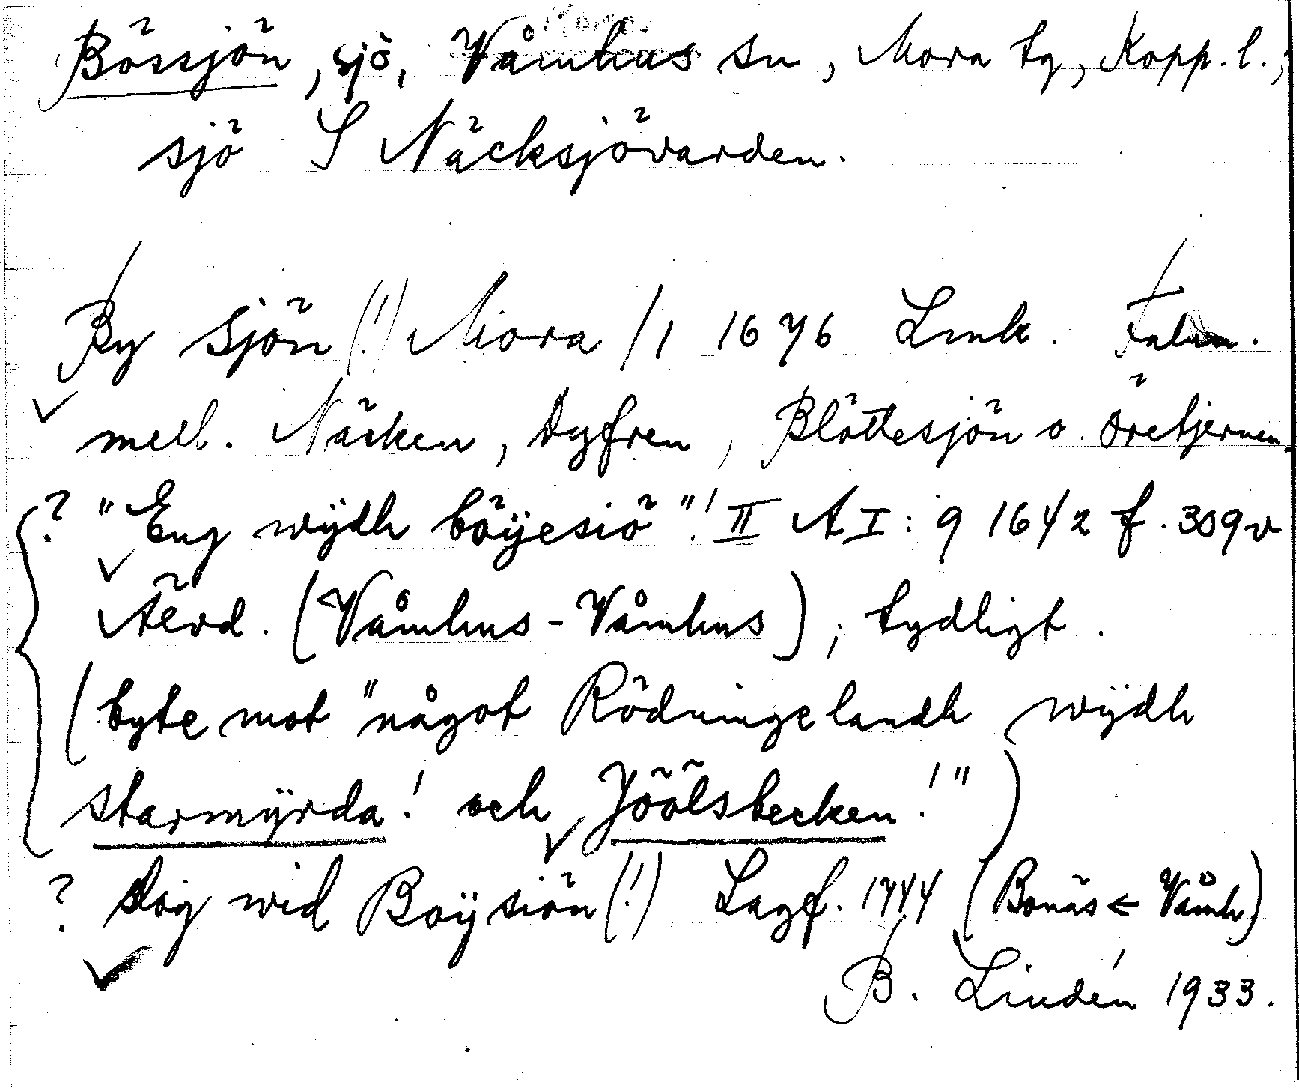 Bössjön, sjö, Våmhus sn, Mora tg, Kopp. l.;
sjö S Näcksjövarden.
By sjön (!) Mora /1 1676 Lmk. Falun.
mell. Näcken, Dyfren, Blöttesjön o. Öretjernen
? "Eng wÿdh böÿesiö"! II A I: 9 1642 f. 309v
Älvd. (Våmhus - Våmhus); tydligt.
(byte mot "något Rödningelandh wÿdh
starmÿrda! och Jöölsbecken!")
? Slog wid Boÿsiön (!) Lagf. 1744 (Bonäs ← Våmh.)
B. Lindén 1933.